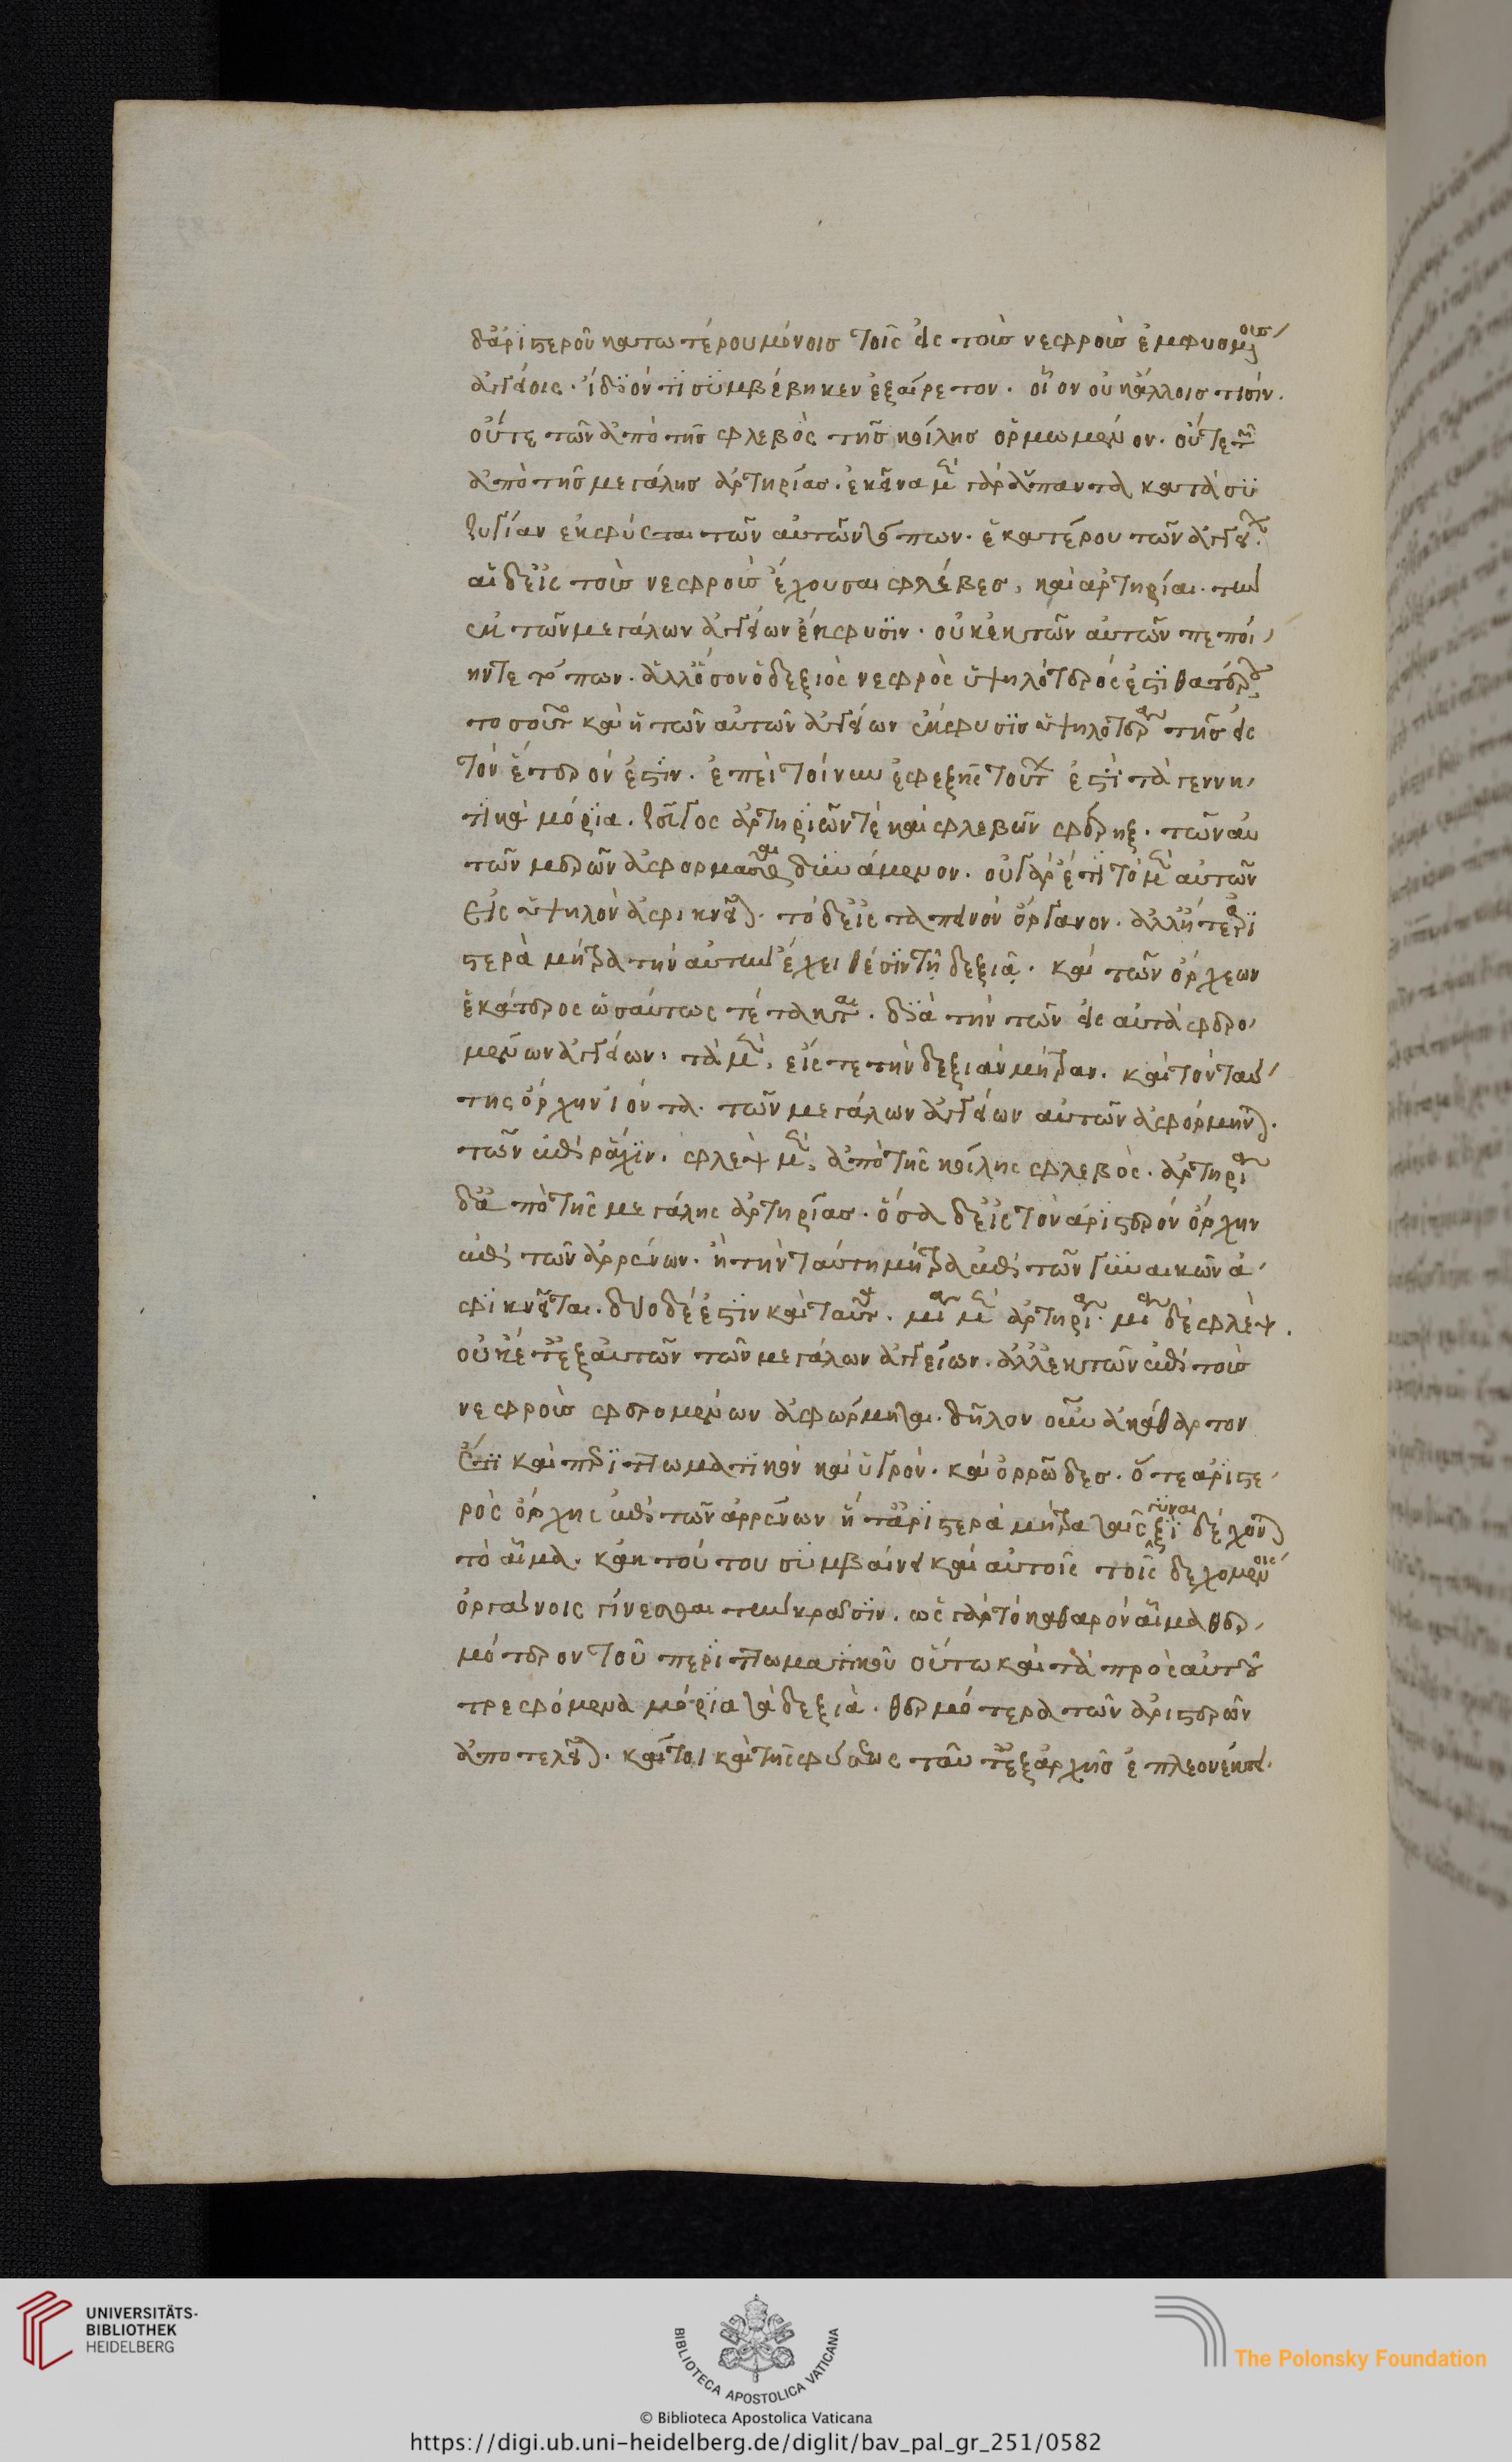 δἀριστεροῦ κατωτέρου μόνοις τοῖς εἰς τοὺς νεφροὺς ἐμφυομένοις
ἀγγείοις. ἴδιόν τι συμβέβηκεν ἐξαίρετον. οἷον οὐκ ἄλλοις τισίν.
οὔτε τῶν ἀπὸ τῆς φλεβὸς τῆς κοίλης ὁρμωμένον. οὔτε τῶν
ἀπὸ τῆς μεγάλης ἀρτηρίας. ἐκεῖνα μὲν γὰρ ἅπαντα κατὰ συ
ζυγίαν ἐκφύεται τῶν αὐτῶν τόπων. ἑκατέρου τῶν ἀγγείων.
αἱ δ εἰς τοὺς νεφροὺς ἔχουσαι φλέβες, καὶ ἀρτηρίαι. τὴν
ἐκ τῶν μεγάλων ἀγγείων ἔκφυσιν. οὐκ ἐκ τῶν αὐτῶν πεποί
ηνται τόπων. ἀλλ ὅσον ὁ δεξιὸς νεφρὸς ὑψηλότερός ἐστι θατέρου,
τοσοῦτον καὶ ἡ τῶν αὐτῶν ἀγγείων ἔκφυσις ὑψηλοτέρα τῆς εἰς
τὸν ἕτερόν ἐστιν. ἐπεὶ τοίνυν ἐφεξῆς τούτων ἐστὶ τὰ γεννη
τικὰ μόρια. ζεῦγος ἀρτηριῶν τε καὶ φλεβῶν φέρειν. τῶν αὐ
τῶν μερῶν ἀφορμᾶσθαι δυνάμενον. οὐ γὰρ ἔτι τὸ μὲν αὐτῶν
εἰς ὑψηλὸν ἀφικνεῖται. τὸ δ εἰς ταπεινὸν ὄργανον. ἀλλ ἥ τε ἀρι
στερὰ μήτρα τὴν αὐτὴν ἔχει θέσιν τῇ δεξιᾷ. καὶ τῶν ὄρχεων
ἑκάτερος ὡσαύτως τέτακται. διὰ τὴν τῶν εἰς αὐτὰ φερο
μένων ἀγγείων. τὰ μὲν, εἴς τε τὴν δεξιὰν μήτραν. καὶ τὸν ταύ
της ὄρχην ἰόντα. τῶν μεγάλων ἀγγείων αὐτῶν ἀφόρμηνται.
τῶν ἐπὶ ῥάχιν. φλεψ μὲν, ἀπὸ τῆς κοίλης φλεβὸς. ἀρτηρία
δ ἀπὸ τῆς μεγάλης ἀρτηρίας. ὅσα δ εἰς τὸν ἀριστερὸν ὄρχην
ἐπὶ τῶν ἀρρένων. ἢ τὴν ταύτη μήτρα ἐπὶ τῶν γυναικῶν ἀ
φικνεῖται. δύο δέ ἐστιν καὶ ταῦτα. μία μὲν ἀρτηρία. μία δὲ φλέψ.
οὐκέτ ἐξ αὐτῶν τῶν μεγάλων ἀγγείων. ἀλλ ἐκ τῶν ἐπὶ τοὺς
νεφροὺς φερομένων ἀφώρμηται. δῆλον οὖν ἀκάθαρτον
ἔτι καὶ περιττωματικὸν καὶ ὑγρόν. καὶ ὀρρῶδες. ὅ τε ἀριστε
ρὸς ὄρχης ἐπὶ τῶν ἀρρένων ἥ τ ἀριστερὰ μήτρα ταῖς γυναιξὶ δέχονται
τὸ αἷμα. κἀκ τούτου συμβαίνει καὶ αὐτοῖς τοῖς δεχομένοις
ὀργάνοις γίνεσθαι τὴν κρᾶσιν. ὡς γὰρ τὸ καθαρὸν αἷμα θερ
μότερον τοῦ περιττωματικοῦ οὕτω καὶ τὰ πρὸς αὐτοῦ
τρεφόμενα μόρια τὰ δεξιὰ. θερμότερα τῶν ἀριστερῶν
ἀποτελεῖται. καί τοι καὶ τῆς φύσεως ταῦτ ἐξ ἀρχῆς ἐπλεονέκτει.
UNIVERSITÄTS-
BIBLIOTHEK
HEIDELBERG
BIBLIOTECA APOSTOLICA VATICANA
The Polonsky Foundation
© Biblioteca Apostolica Vaticana
https://digi.ub.uni-heidelberg.de/diglit/bav_pal_gr_251/0582